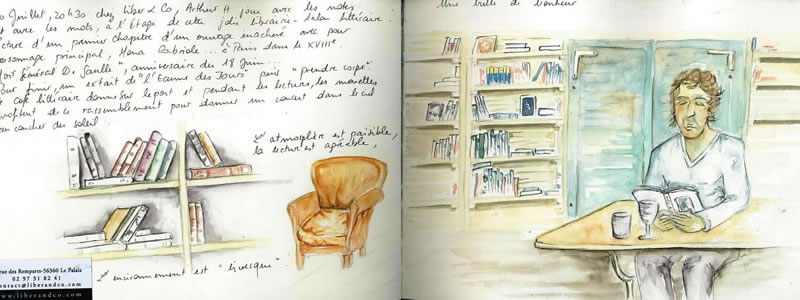 Juillet, 20h30 chez Liber & Co, Arthur H joue avec les notes
et avec les mots, à l'étage de cette jolie librairie-salon littéraire.
lecture d'un premier chapitre d'un ouvrage inachevé avec pour
personnage principal, Mona Cabriole... à Paris dans le XVIIIe.
Général De Gaulle", anniversaire du 18 Juin...
Pour finir, un extait de "l'écume des Jours" puis "prendre corps".
café littéraire donne sur le port et pendant les lectures, les mouettes
de ce rassemblement pour donner un concert dans le ciel
au coucher du soleil.
L'atmosphère est paisible,
la lecture est agréable,
L'environnement est "livresque"
rue des Remparts-56360 Le Palais
02 97 31 82 41
contact@liberandco.com
www.liberandco.com
Une bulle de bonheur